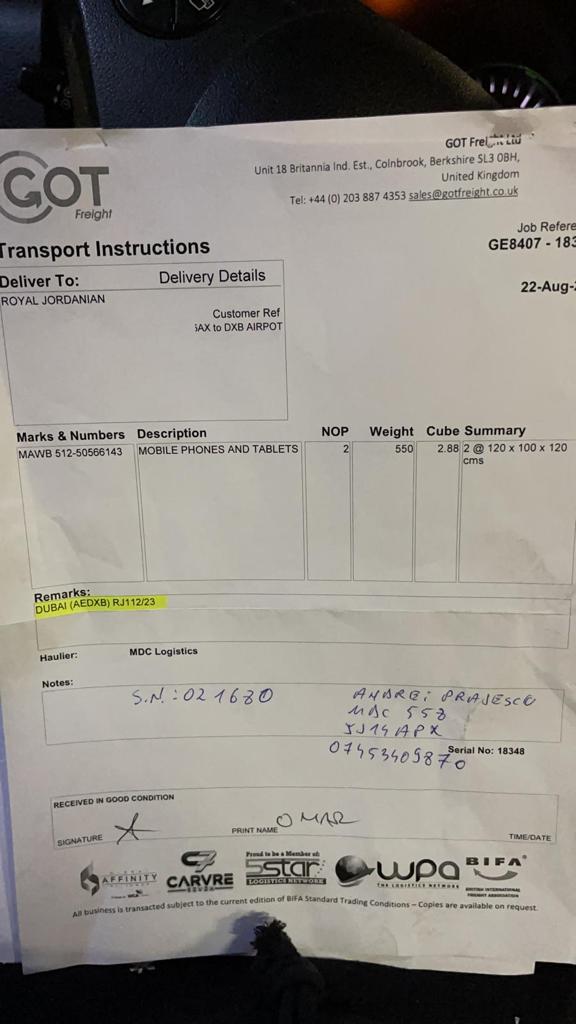 GOT
Freight
GOT Freight Ltd
Unit 18 Britannia Ind. Est., Colnbrook, Berkshire SL3 0BH,
United Kingdom
Tel: +44 (0) 203 887 4353 sales@gotfreight.co.uk
Transport Instructions
Job Refere
GE8407 - 183
22-Aug-2
Deliver To: Delivery Details
ROYAL JORDANIAN
Customer Ref
SAX to DXB AIRPOT
Marks & Numbers Description NOP Weight Cube Summary
MAWB 512-50566143 MOBILE PHONES AND TABLETS 2 550 2.88 2 @ 120 x 100 x 120
cms
Remarks:
DUBAI (AEDXB) RJ112/23
Haulier: MDC Logistics
Notes:
S.N.: 021680
ANDREI PRAJESCU
MDC 558
07453409870
Serial No: 18348
RECEIVED IN GOOD CONDITION
SIGNATURE
PRINT NAME OMAR
TIME/DATE
AFFINITY
CARVRE
Proud to be a Member of:
5star
LOGISTICS NETWORK
wpa
THE LOGISTICS NETWORK
BIFA
BRITISH INTERNATIONAL
FREIGHT ASSOCIATION
All business is transacted subject to the current edition of BIFA Standard Trading Conditions – Copies are available on request.